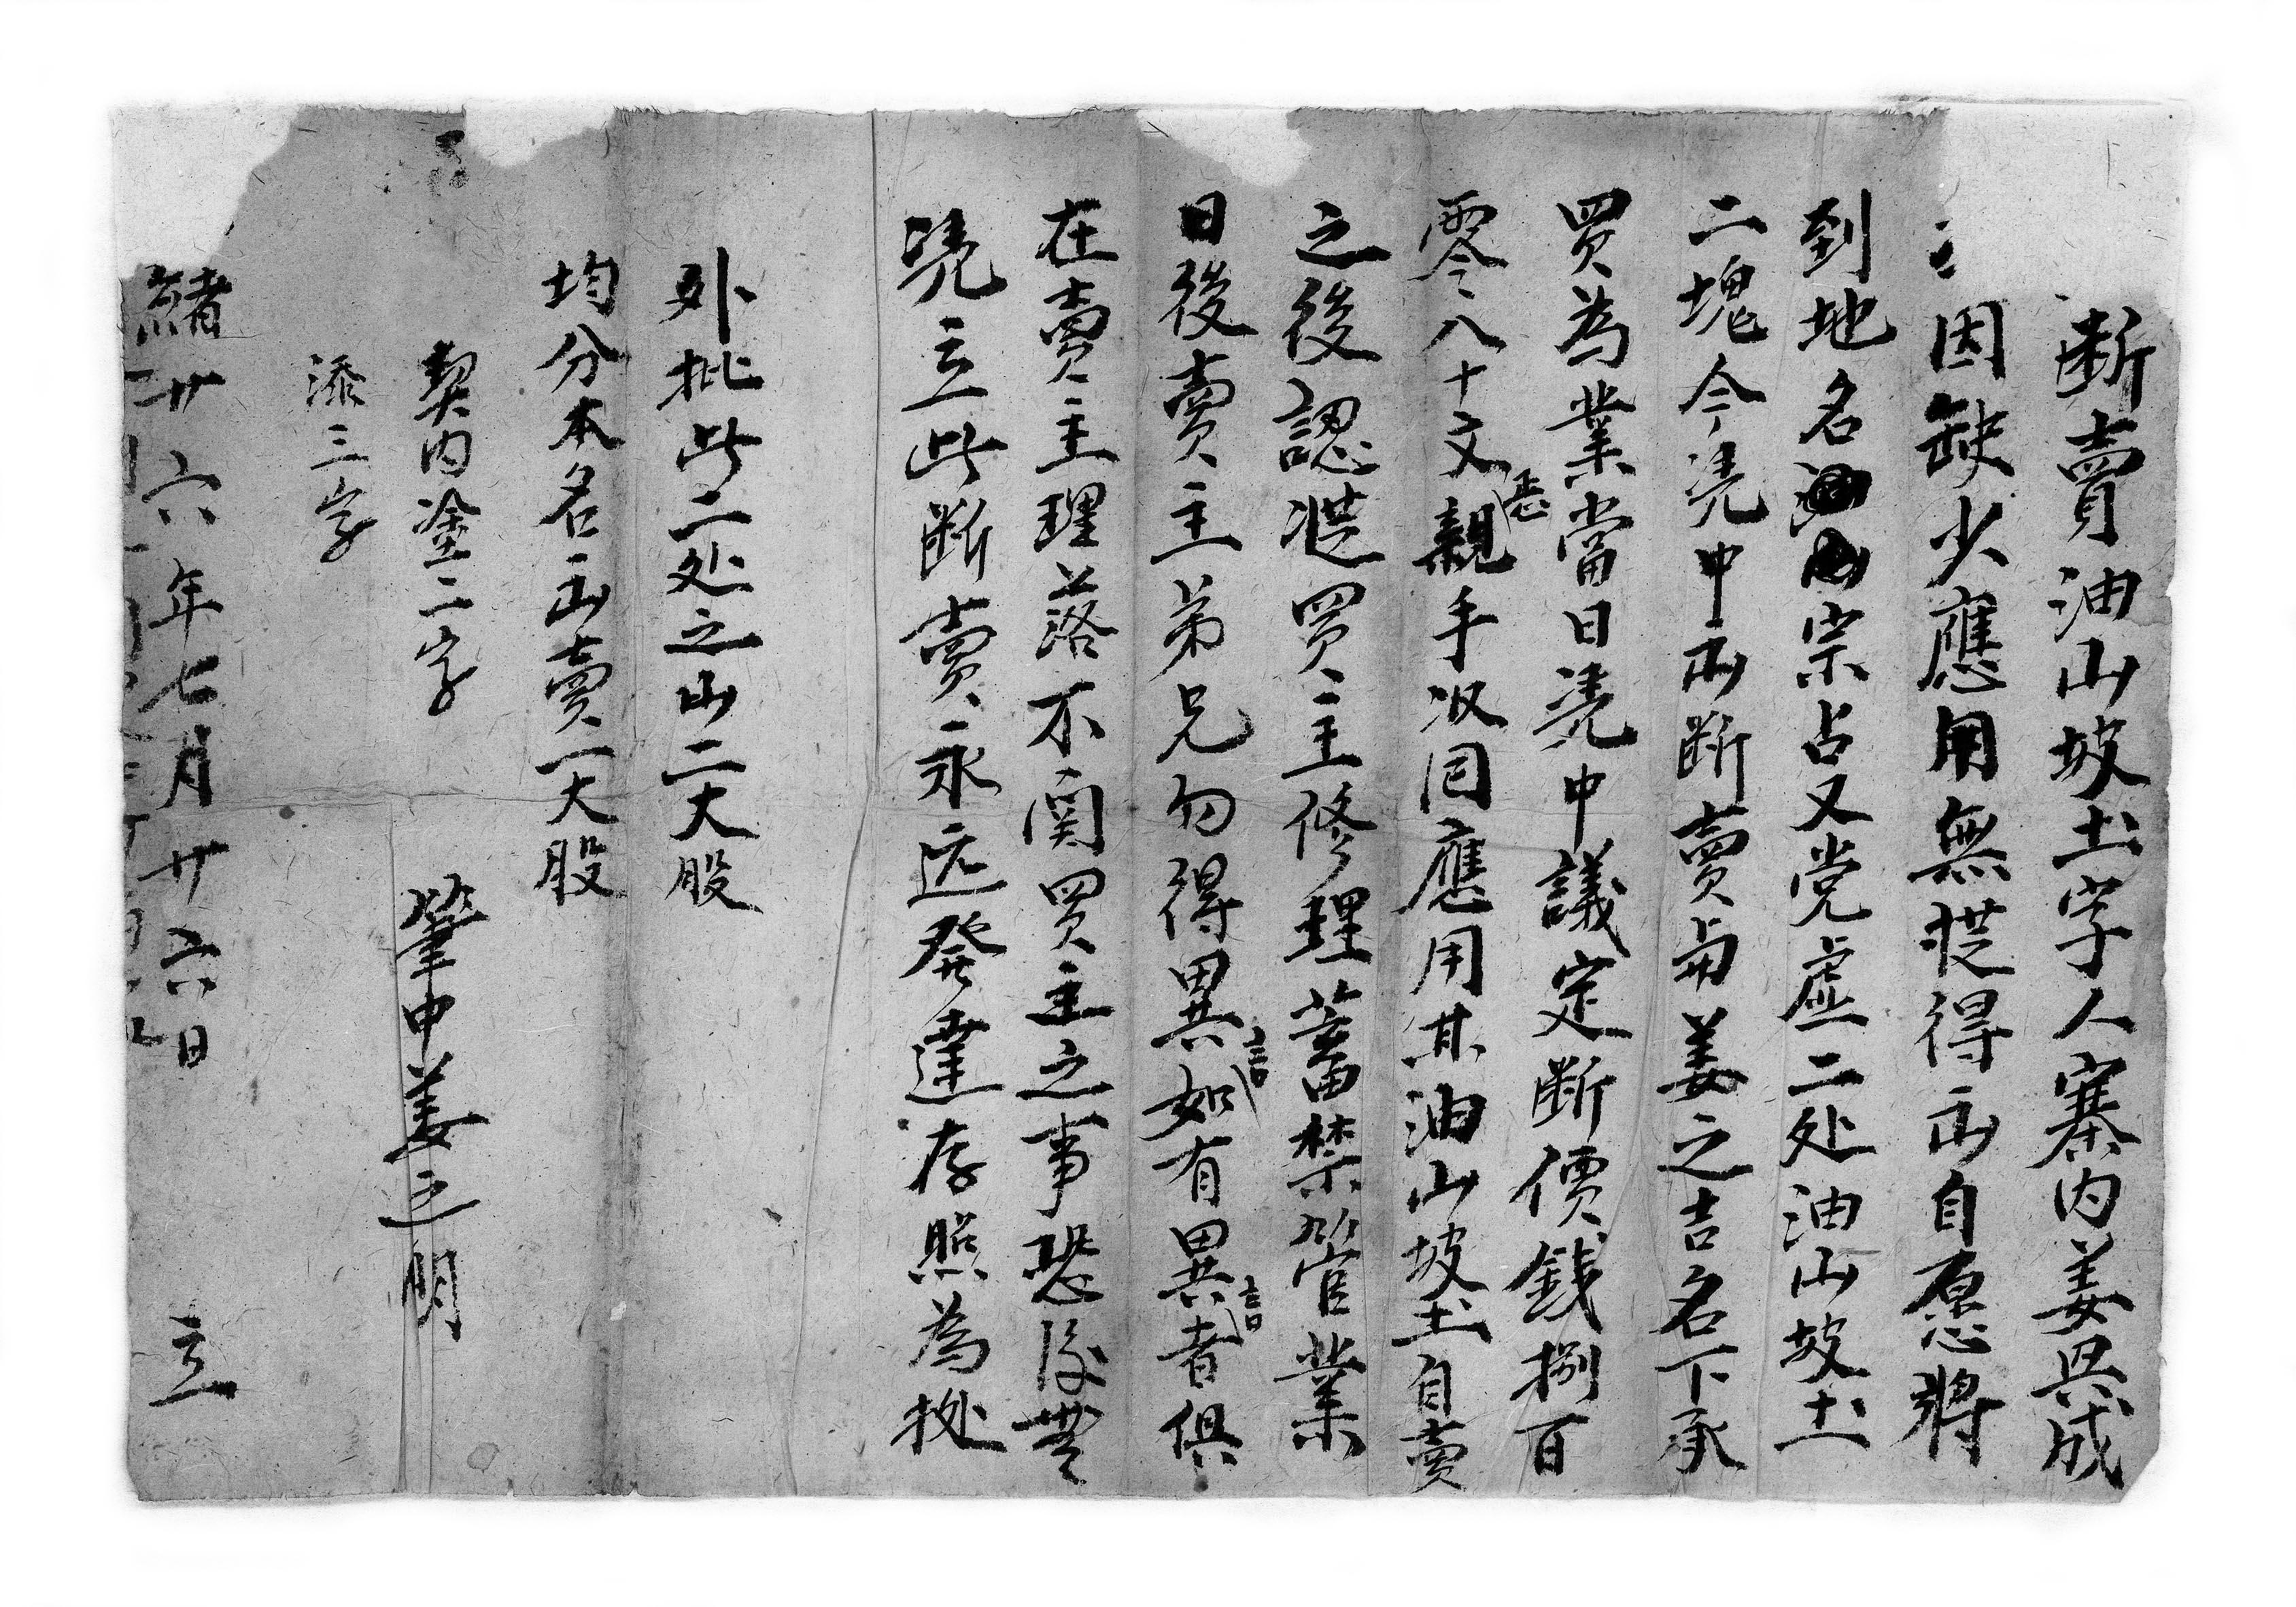 断賣油山坡土字人寨内姜兴成
因缺少應用無㨗得出自愿將
到地名宗占又党虚二处油山坡土
二塊今凴中出断賣与姜之吉名下承
買為業當日凴中議定断價錢捌百
零八十文悉親手收囘應用其油山坡土自賣
之後認凴買主修理蓄禁管業
日後賣主弟兄勿得異言如有異言者俱
在賣主理落不関買主之事恐後無
凴立此断賣永远發達存照為拠
外批此二处之山二大股
均分本名出賣一大股
契内塗二字
添三字
筆中姜之明
緒廿六年七月廿六日 立